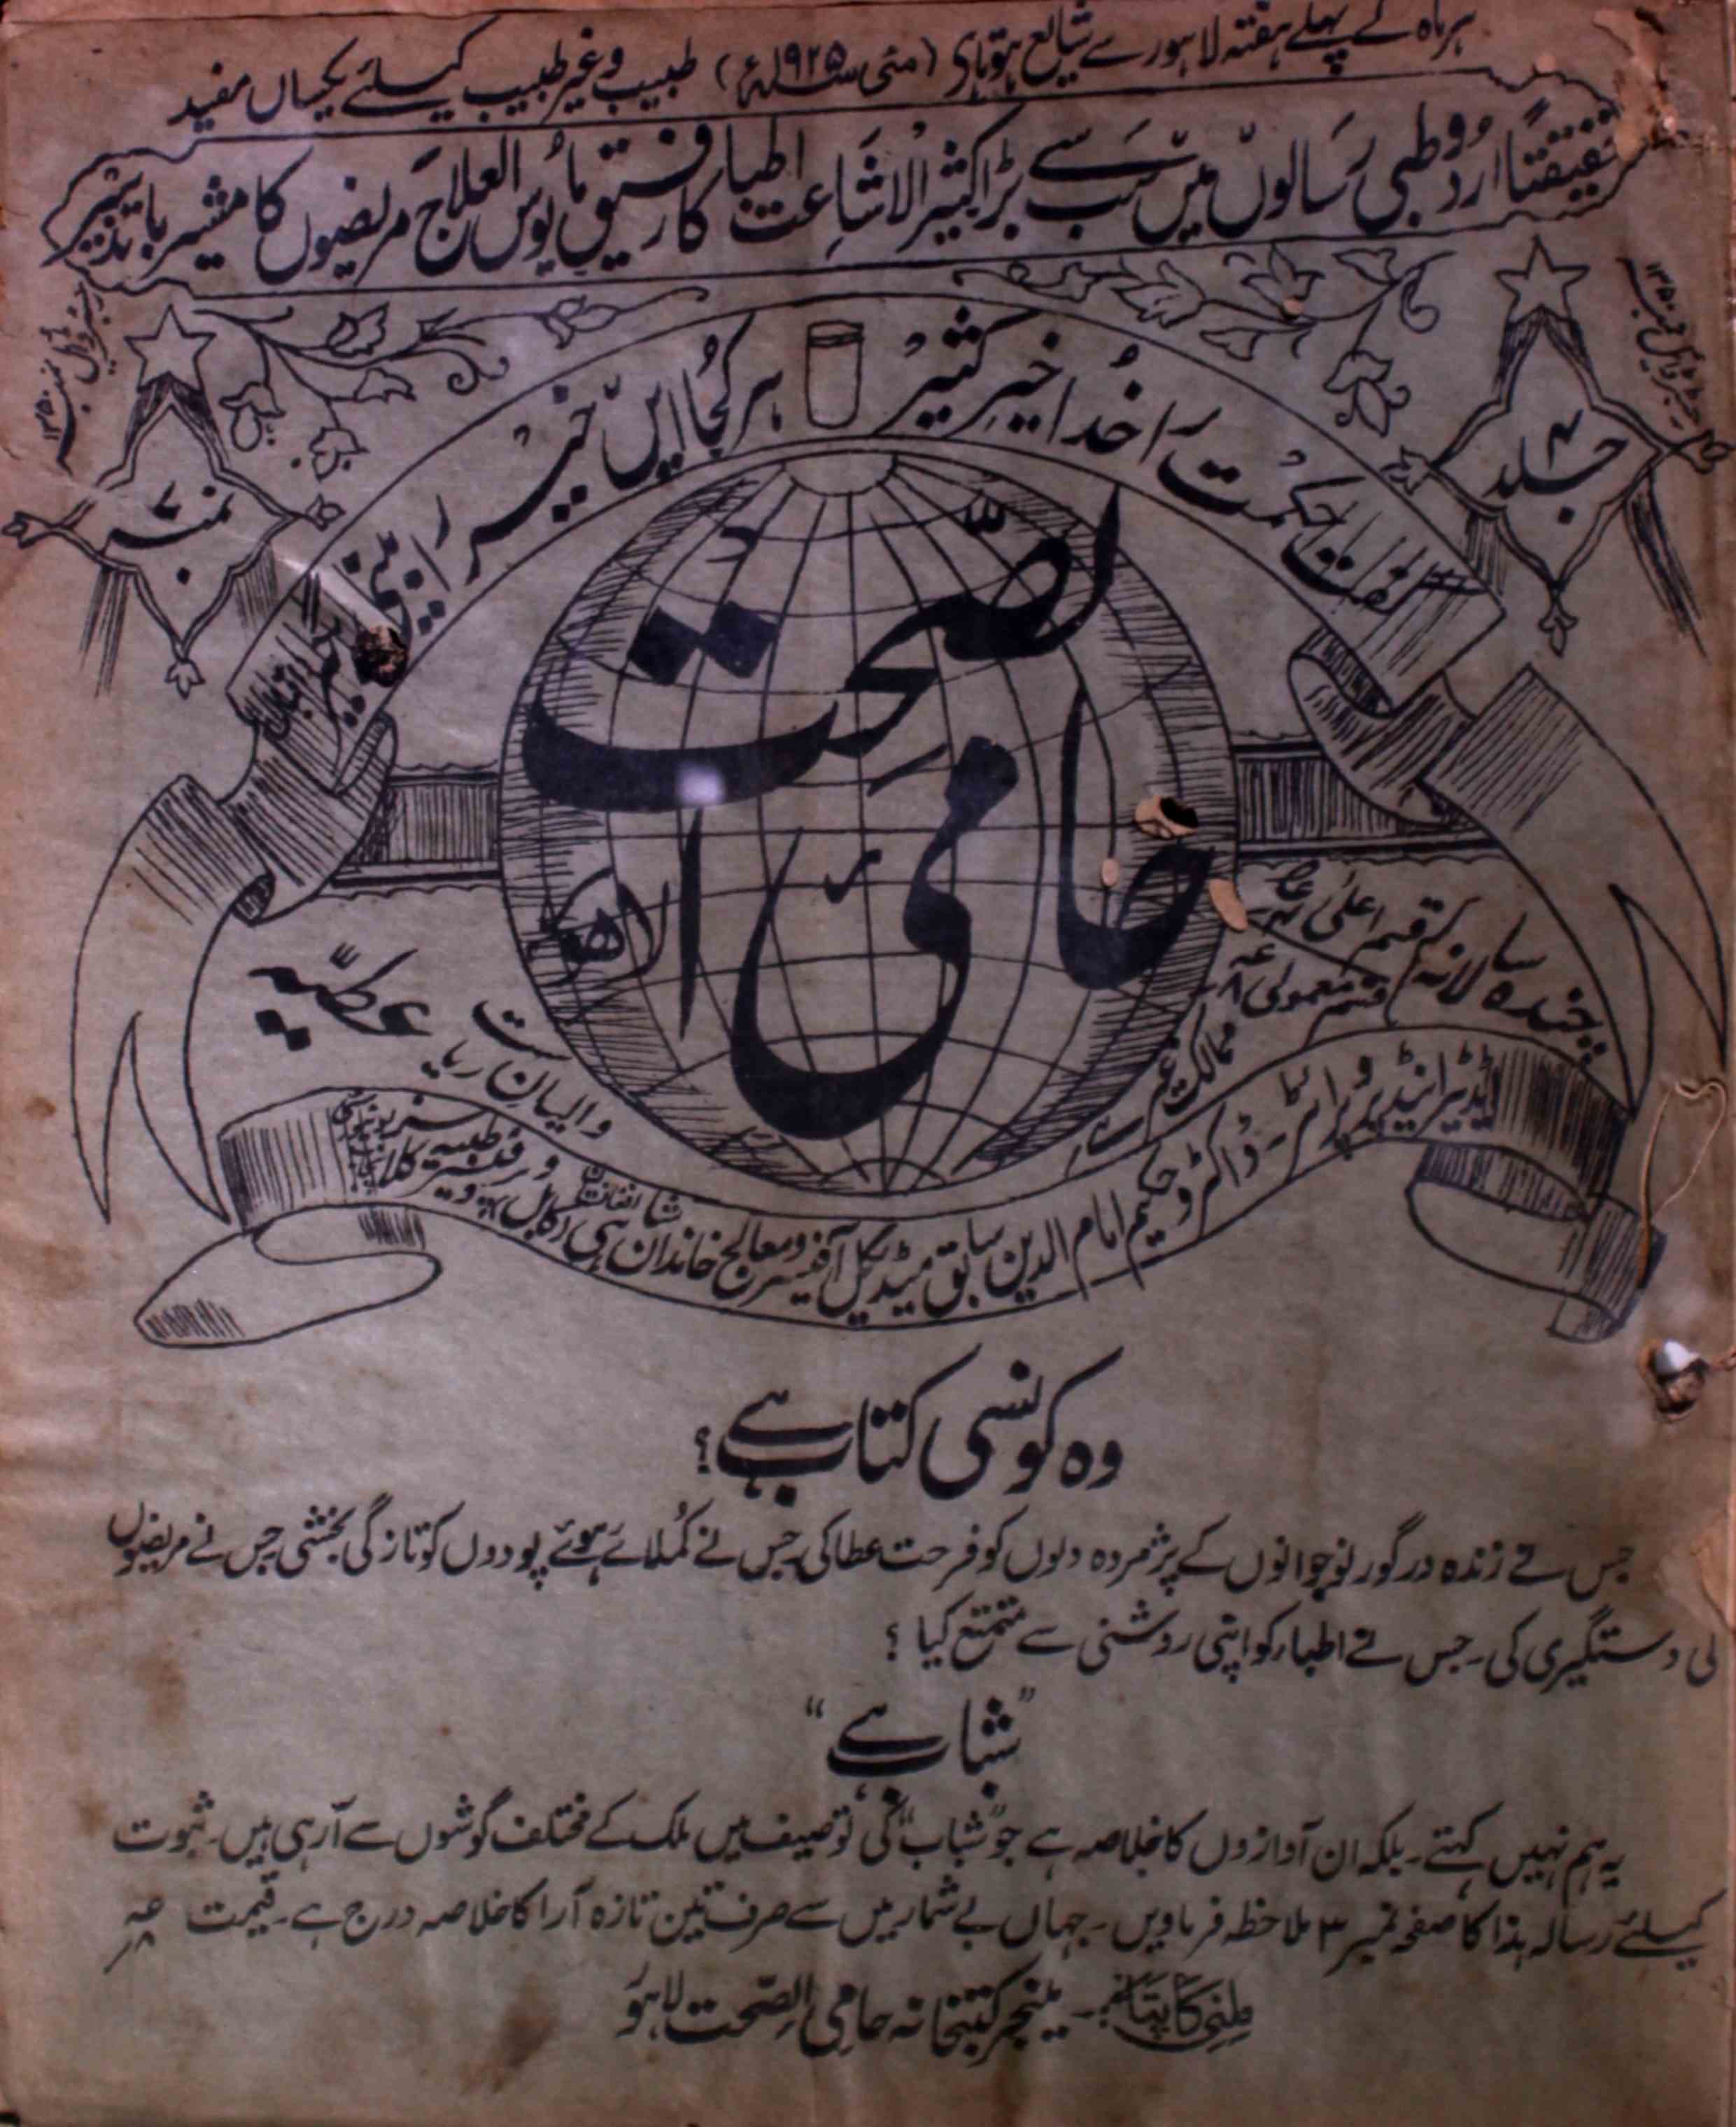 ہر ماہ کے پہلے ہفتہ لاہور سے شایع ہوتا ہے (مئی ۱۹۲۵ء) طبیب و غیر طبیب کیلئے یکساں مفید
حقیقتاً اردو طبی رسالوں میں سب سے بڑا کثیر الاشاعت اطبا کا رفیق مایوس العلاج مریضوں کا مشیر با تدبیر
جلد ۴
نمبر ۷
گفت حکمت را خدا خیر کثیر
ہر کجا ایں خیر را بینی
حامی الصحت
لاہور
چندہ سالانہ قسم اعلیٰ
قسم معمولی
ممالک غیر سے
والیان ریاست
عطیہ
ایڈیٹر اینڈ پروپرائٹر ۔ ڈاکٹر و حکیم امام الدین سابق میڈیکل آفیسر و معالج خاندان شاہی افغانستان (کابل) و پروفیسر طبیہ کلاس
وہ کونسی کتاب ہے؟
جس نے زندہ درگور نوجوانوں کے پژمردہ دلوں کو فرحت عطا کی جس نے کملائے ہوئے پودوں کو تازگی بخشی جس نے مریضوں
کی دستگیری کی۔ جس نے اطباء کو اپنی روشنی سے متمتع کیا ؟
”شباب ہے“
یہ ہم نہیں کہتے۔ بلکہ ان آوازوں کا خلاصہ ہے جو ”شباب“ کی توصیف میں ملک کے مختلف گوشوں سے آ رہی ہیں۔ ثبوت
کیلئے رسالہ ہذا کا صفحہ نمبر ۳ ملاحظہ فرماویں۔ جہاں بے شمار میں سے صرف تین تازہ آرا کا خلاصہ درج ہے۔ قیمت
ملنے کا پتا :۔ مینجر کتبخانہ حامی الصحت لاہور